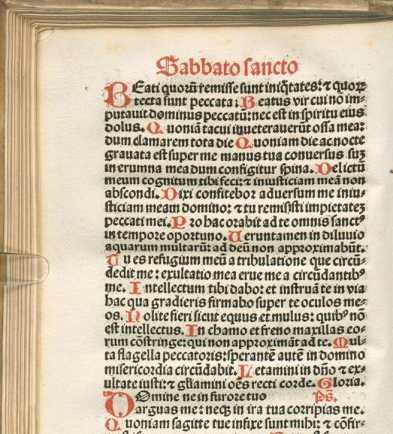 Sabbato sancto
BEati quorũ remisse sunt iniq̃tates: ⁊ quoꝝ
tecta sunt peccata. Beatus vir cui no im-
putauit dominus peccatũ: nec est in spiritu eius
dolus. Quoniã tacui inueterauerũt ossa mea:
dum clamarem tota die Quoniam die ac nocte
grauata est super me manus tua conuersus suʒ
in erumna mea dum configitur spina. Delictũ
meum cognitum tibi feci: ⁊ iniusticiam meã non
abscondi. Dixi confitebor aduersum me iniu-
sticiam meam domino: ⁊ tu remisisti impietateʒ
peccati mei. Pro hac orabit ad te omnis sanctꝰ
in tempore oportuno. Ueruntamen in diluuio
aquarum multarũ: ad deũ non approximabũt.
Tu es refugium meũ a tribulatione que circũ-
dedit me: exultatio mea erue me a circũdantibꝰ
me. Intellectum tibi dabo: et instruã te in via
hac qua gradieris firmabo super te oculos me-
os. Nolite fieri sicut equus et mulus: quibꝰ nõ
est intellectus. In chamo et freno maxillas eo-
rum cõstringe: qui non approximãt ad te. Mul-
ta flagella peccatoris: sperantẽ autẽ in domino
misericordia circũdabit. Letamini in dño ⁊ ex-
ultate iusti: ⁊ gl̃amini oẽs recti corde. Gloria.
DOmine ne in furore tuo ps̃.
arguas me: neqʒ in ira tua corripias me.
Quoniam sagitte tue infixe sunt mihi: ⁊ cõfir-